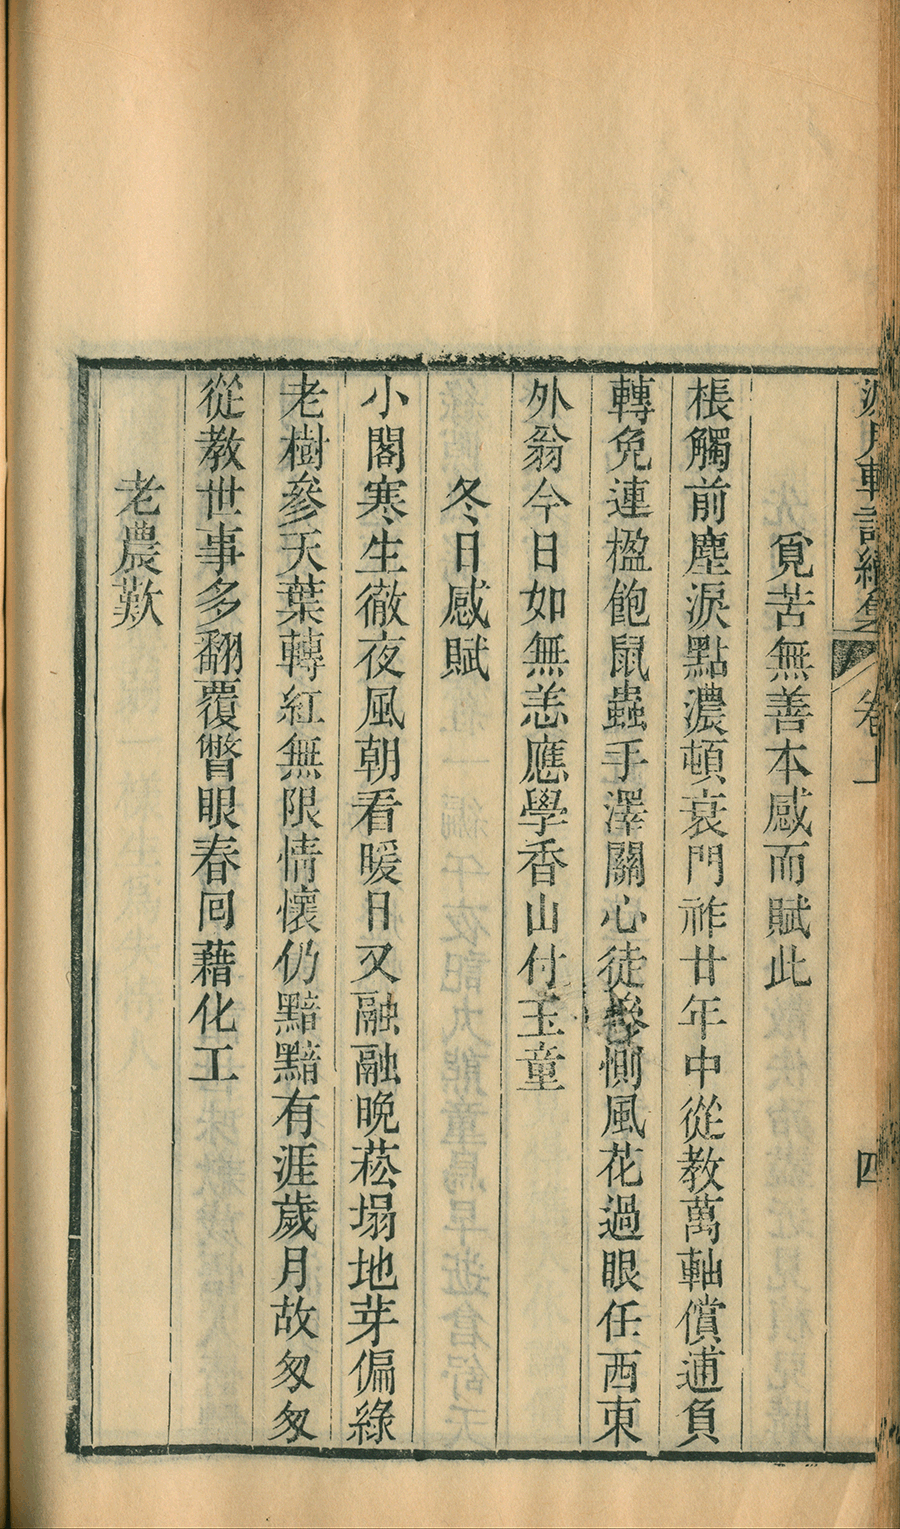 軒詩續集
卷上
四
覓苦無善本感而賦此
棖觸前塵淚點濃頓衰門祚廿年中從教萬軸償逋負
轉免連楹飽鼠蟲手澤關心徒惻風花過眼任西東
外翁今日如無恙應學香山付玉童
冬日感賦
小閣寒生徹夜風朝看暖日又融融晚菘塌地芽偏綠
老樹參天葉轉紅無限情懷仍黯黯有涯歲月故匆匆
從教世事多翻覆瞥眼春回藉化工
老農歎